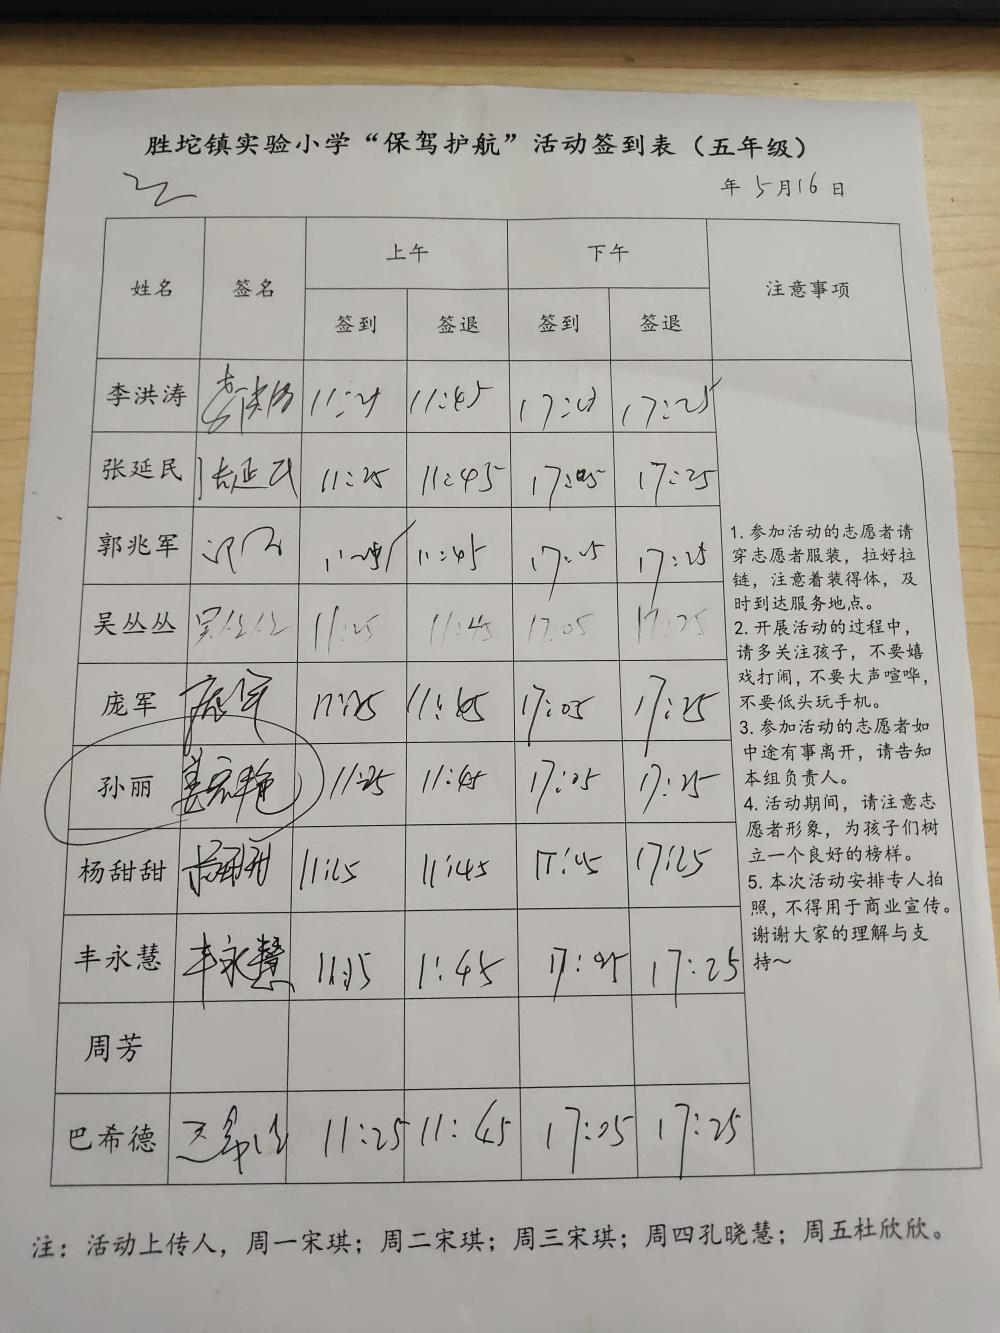 胜坨镇实验小学“保驾护航”活动签到表（五年级）
年 5月16日
姓名 签名 上午 下午 注意事项
签到 签退 签到 签退
李洪涛 11:45 17:25
张延民 张延民 11:25 11:45 17:05 17:25
郭兆军 11:45 17:25
吴丛丛 吴丛丛 11:25 11:45 17:05 17:25
庞军 庞军 11:25 11:45 17:05 17:25
孙丽 11:25 11:45 17:05 17:25
杨甜甜 11:25 11:45 17:25
丰永慧 丰永慧 1:45 17:05 17:25
周芳
巴希德 11:25 11:45 17:05 17:25
1. 参加活动的志愿者请
穿志愿者服装，拉好拉
链，注意着装得体，及
时到达服务地点。
2. 开展活动的过程中，
请多关注孩子，不要嬉
戏打闹，不要大声喧哗，
不要低头玩手机。
3. 参加活动的志愿者如
中途有事离开，请告知
本组负责人。
4. 活动期间，请注意志
愿者形象，为孩子们树
立一个良好的榜样。
5. 本次活动安排专人拍
照，不得用于商业宣传。
谢谢大家的理解与支
持～
注：活动上传人，周一宋琪；周二宋琪；周三宋琪；周四孔晓慧；周五杜欣欣。